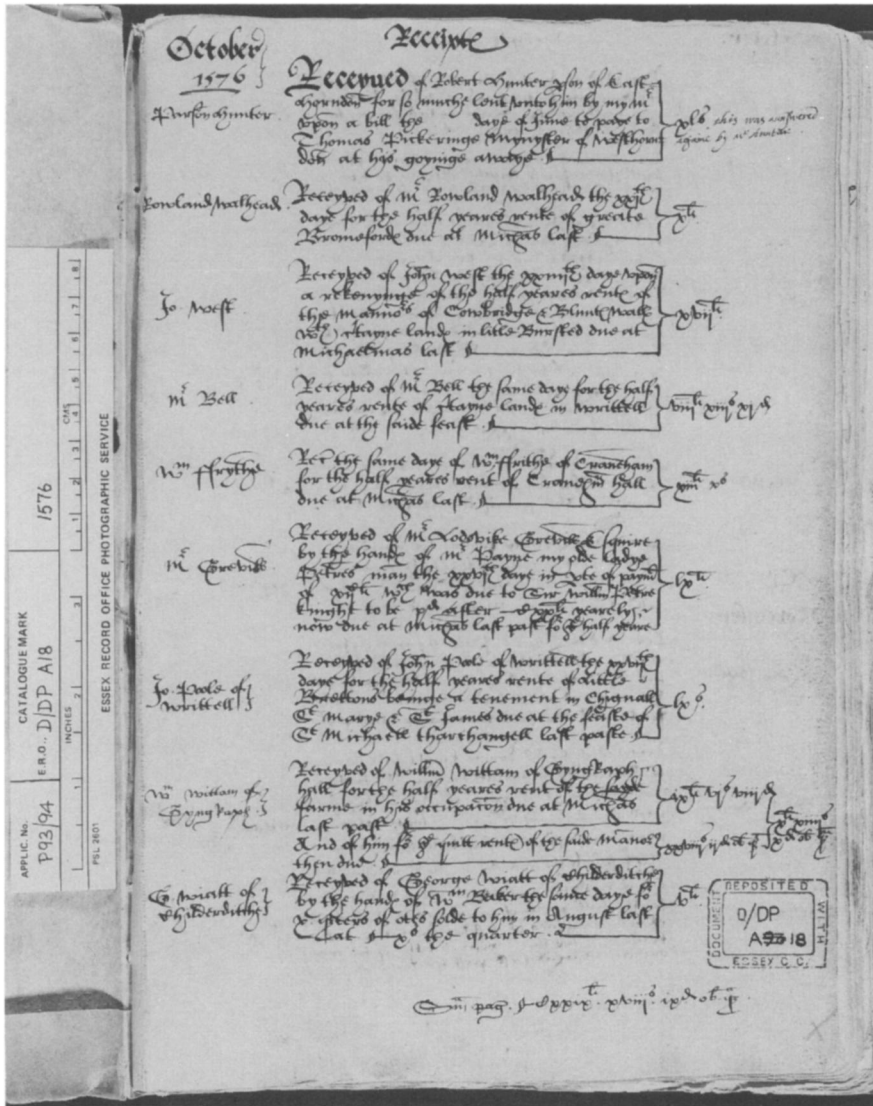 October
1576
Receipte
Parson Hunter
Receyued of Robert Hunter pson of East
Horndon for so muche lent unto him by my Mr
upon a bill the daye of June to paye to
Thomas Pickeringe Mynyster of Westhorn
den at his goyinge awaye
xls this was
againe by Mr
Rowland Walheade
Receyved of Mr Rowland Walheade the
daye for the half yeares rente of greate
Bromeforde due at Michas last
xli
Jo. West
Receyved of John West the daye upon
a rekenynge of the half yeares rente of
the Mannors of Cowbridge & Blunte Wall
wth Stayne lande in litle Bursted due at
Michaelmas last
xviili
Mr Bell
Receyved of Mr Bell the same daye for the half
yeares rente of Stayne lande in Writtell
due at the saide feast
viiili xiiis xid
Wm ffrythe
Rec the same daye of Wm ffrithe of Craneham
for the half yeares rent of Cranehm hall
due at Michas last
xiiili xs
Mr Grevile
Receyved of Mr Lodovike Grevile Esquire
by the hande of Mr Payne my olde Ladye
Petres man the daye in pte of paymt
of wch was due to Sir Willm Petre
knight to be pd after yearely
now due at Michas last past for half yeare
lxli
Jo. Pole of
Writtell
Receyved of John Pole of Writtell the
daye for the half yeares rente of Litle
beinge a tenement in Chignall
St Marye & St James due at the feaste of
St Michaell tharchangell last paste
lxs
Wm Wittam of
GyngRaph
Receyved of Willm Wittam of GyngRaph
hall for the half yeares rent of the saide
farme in his occupacon due at Michas
last past
ixli vis viiid
And of him for quitt rente of the saide Manor
then due
G. Wiatt of
Childerditche
Receyved of George Wiatt of Childerditche
by the hande of Wm Baker the same daye for
x qrters of otes solde to him in August last
at xs the quarter
vli
Sm pag. Cxxixli xviiis ixd ob q
APPLIC. No.
P93/94
CATALOGUE MARK
E.R.O., D/DP A18
1576
INCHES
CMS
ESSEX RECORD OFFICE PHOTOGRAPHIC SERVICE
PSL 2601
DEPOSITED
WITH
ESSEX C.C.
DOCUMENT
D/DP
A18